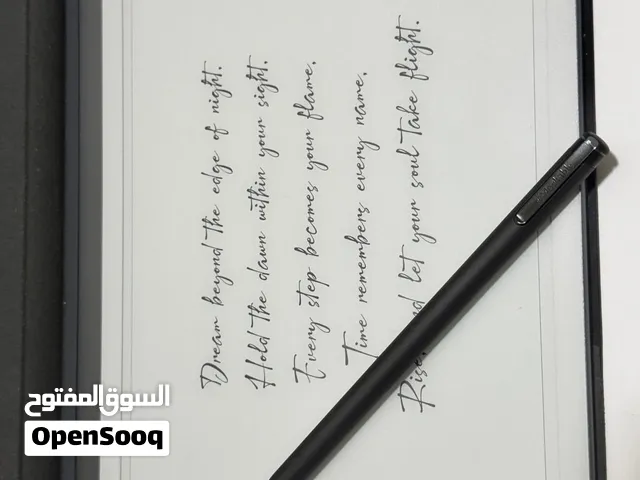 Dream beyond the edge of night.
Hold the dawn within your sight.
Every step becomes your flame.
Time remembers every name.
Rise, and let your soul take flight.
السوق المفتوح
OpenSooq